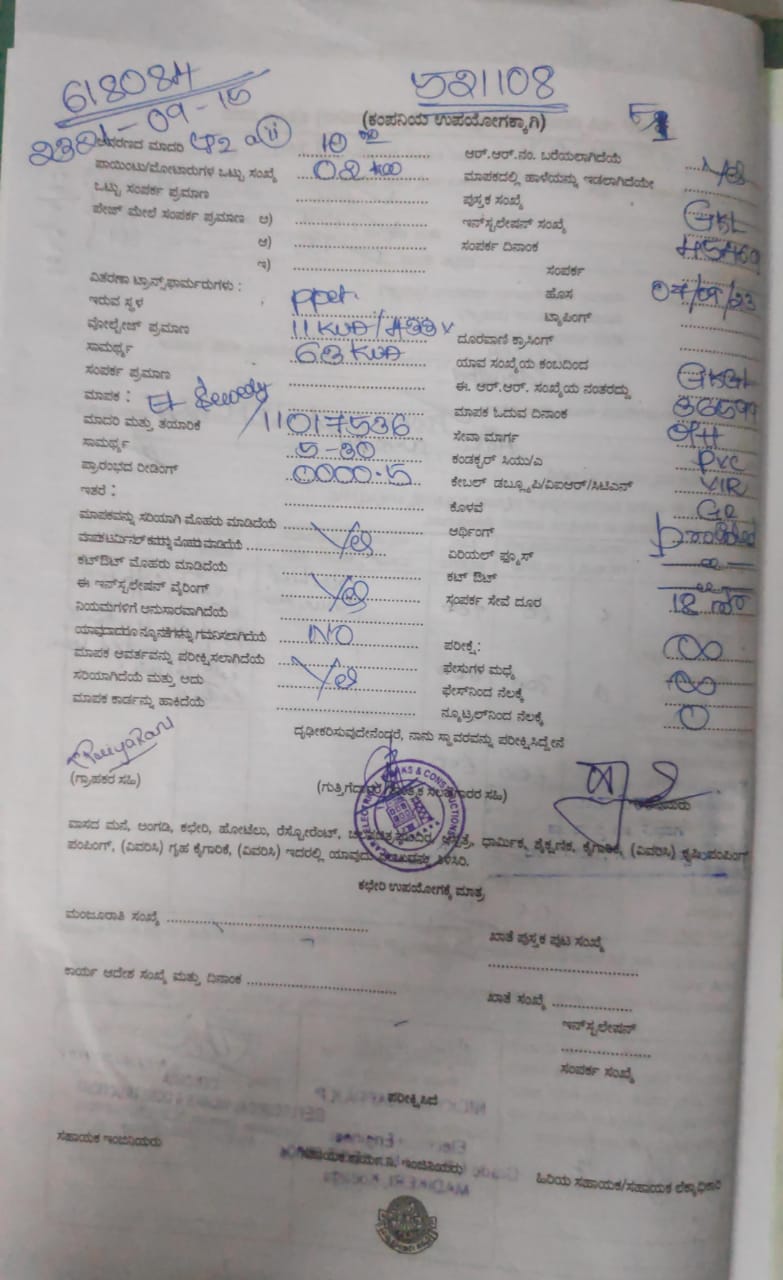 618084
521108
09-15
(ಕಂಪನಿಯ ಉಪಯೋಗಕ್ಕಾಗಿ)
ಮಾದರಿ 10 ಆರ್.ಆರ್.ನಂ. ಬರೆಯಲಾಗಿದೆಯೆ Yes
ಪಾಯಿಂಟು/ಮೋಟಾರುಗಳ ಒಟ್ಟು ಸಂಖ್ಯೆ 02 ಮಾಪಕದಲ್ಲಿ ಹಾಳೆಯನ್ನು ಇಡಲಾಗಿದೆಯೇ
ಒಟ್ಟು ಸಂಪರ್ಕ ಪ್ರಮಾಣ ಪುಸ್ತಕ ಸಂಖ್ಯೆ
ಪೇಜ್ ಮೇಲೆ ಸಂಪರ್ಕ ಪ್ರಮಾಣ ಅ) ಇನ್‌ಸ್ಟಲೇಷನ್ ಸಂಖ್ಯೆ GKL
ಆ) ಸಂಪರ್ಕ ದಿನಾಂಕ 45469
ಇ) ಸಂಪರ್ಕ
ವಿತರಣಾ ಟ್ರಾನ್ಸ್‌ಫಾರ್ಮರುಗಳು : ಹೊಸ 07/09/23
ಇರುವ ಸ್ಥಳ ಟ್ಯಾಪಿಂಗ್
ವೋಲ್ಟೇಜ್ ಪ್ರಮಾಣ 11 KVA/433 V ದೂರವಾಣಿ ಕ್ರಾಸಿಂಗ್
ಸಾಮರ್ಥ್ಯ 63 KVA ಯಾವ ಸಂಖ್ಯೆಯ ಕಂಬದಿಂದ
ಸಂಪರ್ಕ ಪ್ರಮಾಣ ಈ. ಆರ್.ಆರ್. ಸಂಖ್ಯೆಯ ನಂತರದ್ದು
ಮಾಪಕ : ಮಾಪಕ ಓದುವ ದಿನಾಂಕ 36599
ಮಾದರಿ ಮತ್ತು ತಯಾರಿಕೆ 11017536 ಸೇವಾ ಮಾರ್ಗ OH
ಸಾಮರ್ಥ್ಯ 5-30 ಕಂಡಕ್ಟರ್ ಸಿಯು/ಎ PVC
ಪ್ರಾರಂಭದ ರೀಡಿಂಗ್ 0000.5 ಕೇಬಲ್ ಡಬ್ಲ್ಯೂಪಿ/ವಿಐಆರ್/ಸಿಟಿಎನ್ VIR
ಇತರೆ : ಕೊಳವೆ GR
ಮಾಪಕವನ್ನು ಸರಿಯಾಗಿ ಮೊಹರು ಮಾಡಿದೆಯೆ ಅರ್ಥಿಂಗ್ provided
ಮಾಪಕ ಟರ್ಮಿನಲ್ ಕವರನ್ನು ಮೊಹರು ಮಾಡಿದೆಯೆ Yes ಏರಿಯಲ್ ಫ್ಯೂಸ್
ಕಟ್‌ಔಟ್ ಮೊಹರು ಮಾಡಿದೆಯೆ ಕಟ್ ಔಟ್
ಈ ಇನ್‌ಸ್ಟಲೇಷನ್ ವೈರಿಂಗ್ Yes ಸಂಪರ್ಕ ಸೇವೆ ದೂರ
ನಿಯಮಗಳಿಗೆ ಅನುಸಾರವಾಗಿದೆಯೆ
ಯಾವುದಾದರೂ ನ್ಯೂನತೆಗಳನ್ನು ಗಮನಿಸಲಾಗಿದೆಯೆ NO ಪರೀಕ್ಷೆ:
ಮಾಪಕ ಆವರ್ತವನ್ನು ಪರೀಕ್ಷಿಸಲಾಗಿದೆಯೆ ಫೇಸುಗಳ ಮಧ್ಯೆ
ಸರಿಯಾಗಿದೆಯೆ ಮತ್ತು ಅದು Yes ಫೇಸ್‌ನಿಂದ ನೆಲಕ್ಕೆ
ಮಾಪಕ ಕಾರ್ಡನ್ನು ಹಾಕಿದೆಯೆ ನ್ಯೂಟ್ರಲ್‌ನಿಂದ ನೆಲಕ್ಕೆ 0
ದೃಢೀಕರಿಸುವುದೇನೆಂದರೆ, ನಾನು ಸ್ಥಾವರವನ್ನು ಪರೀಕ್ಷಿಸಿದ್ದೇನೆ
(ಗ್ರಾಹಕರ ಸಹಿ)
ವಾಸದ ಮನೆ, ಅಂಗಡಿ, ಕಛೇರಿ, ಹೋಟೆಲು, ರೆಸ್ಟೋರೆಂಟ್, ಧಾರ್ಮಿಕ, ಶೈಕ್ಷಣಿಕ, ಕೈಗಾರಿಕೆ, (ವಿವರಿಸಿ) ಕೃಷಿ ಪಂಪಿಂಗ್
ಪಂಪಿಂಗ್, (ವಿವರಿಸಿ) ಗೃಹ ಕೈಗಾರಿಕೆ, (ವಿವರಿಸಿ) ಇದರಲ್ಲಿ ಯಾವುದು
ಕಛೇರಿ ಉಪಯೋಗಕ್ಕೆ ಮಾತ್ರ
ಮಂಜೂರಾತಿ ಸಂಖ್ಯೆ ಖಾತೆ ಪುಸ್ತಕ ಪುಟ ಸಂಖ್ಯೆ
ಕಾರ್ಯ ಆದೇಶ ಸಂಖ್ಯೆ ಮತ್ತು ದಿನಾಂಕ ಖಾತೆ ಸಂಖ್ಯೆ
ಇನ್‌ಸ್ಟಲೇಷನ್
ಸಂಪರ್ಕ ಸಂಖ್ಯೆ
ಪರೀಕ್ಷಿಸಿದೆ
ಸಹಾಯಕ ಇಂಜಿನಿಯರು ಹಿರಿಯ ಸಹಾಯಕ/ಸಹಾಯಕ ಲೆಕ್ಕಾಧಿಕಾರಿ